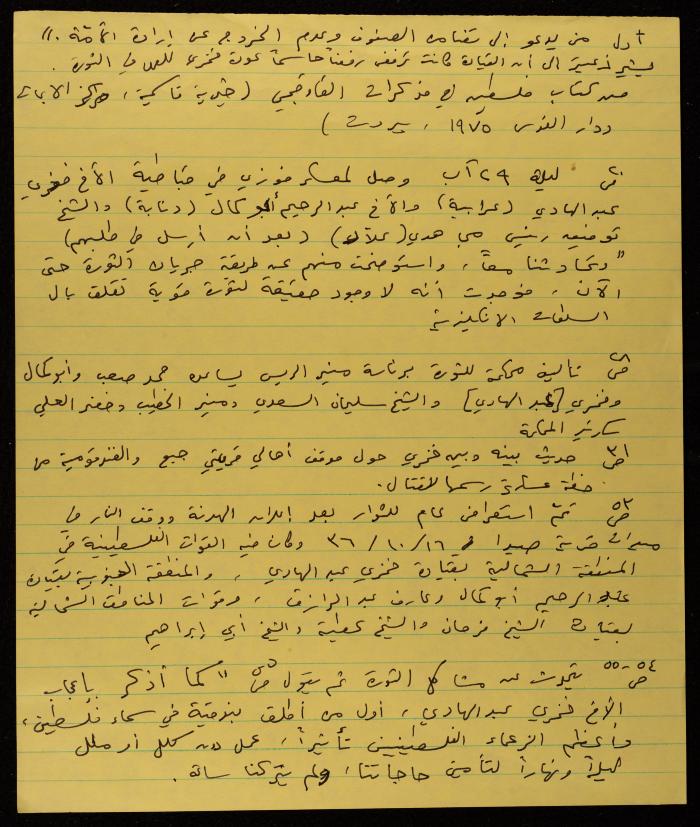 أول من يدعو إلى تضامن الصفوف وعدم الخروج عن إرادة الأمة ."
يشير زعيتر إلى أن القيادة كانت ترفض رفضاً حاسماً عودة فخري للعمل في الثورة .
من كتاب فلسطين في مذكرات القاوقجي (خيرية قاسمية، مركز الأبحاث
ودار القدس ١٩٧٥ ، بيروت )
ص ليلة ٢٩ آب وصل لمعسكر فوزي في قباطية الأخ فخري
عبد الهادي (عرابة) والأخ عبد الرحيم أبو كمال (دنابة) والشيخ
توفيق (علار) (بعد أن أرسل في طلبهم)
" وتحادثنا معاً، واستوضحت منهم عن طريقة جريان الثورة حتى
الآن ، فوجدت أنه لا وجود حقيقة لثورة قوية تقلق بال
السلطات الانكليزية
ص٢٨ تأليف محكمة للثورة برئاسة منير الريس يساعده حمد صعب وأبو كمال
وفخري [عبد الهادي] والشيخ سليمان السعدي ومنير الخطيب وخضر العلي
سكرتير المحكمة
ص٣١ حديث بينه وبين فخري حول موقف أهالي قريتي جبع والفندقومية من
خطة عسكرية رسمها للقتال .
ص٥٢ تم استعراض عام للثوار بعد إعلان الهدنة ووقف النار في
قرية صيدا في ١٦ / ١٠ / ٣٦ وكان فيه القوات الفلسطينية في
المنطقة الشمالية بقيادة فخري عبد الهادي ، والمنطقة الجنوبية بقيادة
عبد الرحيم أبو كمال وعارف عبد الرازق ، وقوات المناطق الشمالية
بقيادة الشيخ فرحان والشيخ عطية والشيخ أبي إبراهيم
ص٥٤-٥٥ يتحدث عن مشاكل الثورة ثم يقول ص٥٥ " كما أذكر بإعجاب
الأخ فخري عبد الهادي ، أول من أطلق بندقية في سماء فلسطين،
وأعظم الزعماء الفلسطينيين تأثيراً ، عمل دون كلل أو ملل
ليلاً ونهاراً لتأمين حاجاتنا، ولم يتركنا ساعة .